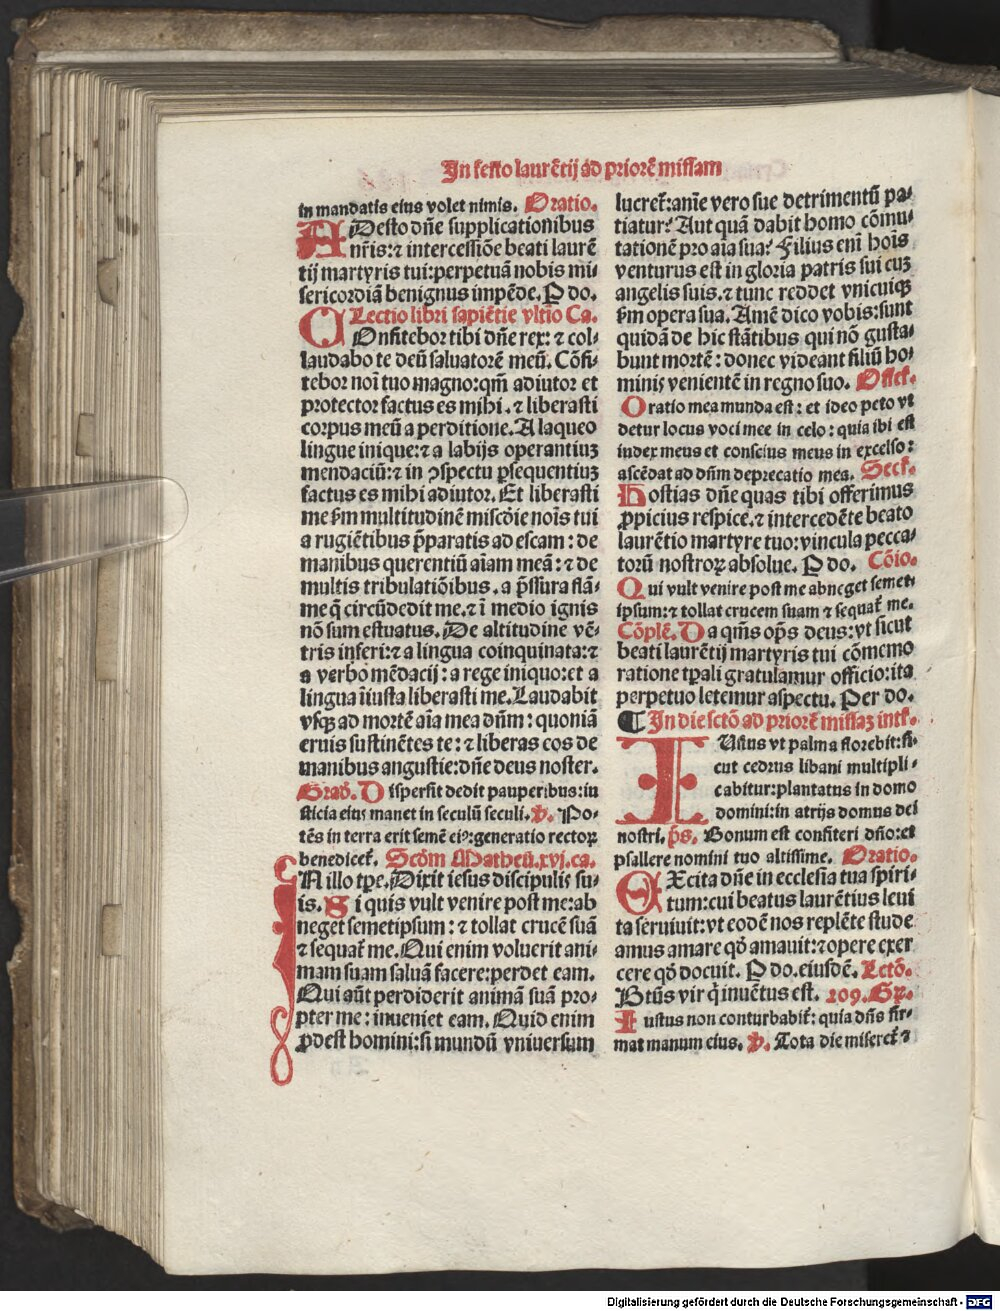 In festo laurētij ad priorē missam
in mandatis eius volet nimis. Oratio.
ADesto dn̄e supplicationibus
nr̄is: ⁊ intercessiōe beati laurē
tij martyris tui: perpetuā nobis mi-
sericordiā benignus impēde. P do.
Lectio libri sapiētie vltīo Ca.
COnfitebor tibi dn̄e rex: ⁊ col-
laudabo te deū saluatorē meū. Cōfi-
tebor noī tuo magno: qm̄ adiutor et
protector factus es mihi. ⁊ liberasti
corpus meū a perditione. A laqueo
lingue inique: ⁊ a labijs operantiuꝫ
mendaciū: ⁊ in ꝯspectu ꝑsequentiuꝫ
factus es mihi adiutor. Et liberasti
me ẜm multitudinē miscd̄ie nois tui
a rugiētibus p̄paratis ad escam: de
manibus querentiū aīam meā: ⁊ de
multis tribulatiōibus. a p̄ssura flā-
me q̄ circūdedit me. ⁊ ī medio ignis
nō sum estuatus. De altitudine vē-
tris inferi: ⁊ a lingua coinquinata: ⁊
a verbo mēdacij: a rege iniquo: et a
lingua īiusta liberasti me. Laudabit
vsqꝫ ad mortē aīa mea dn̄m: quoniā
eruis sustinētes te: ⁊ liberas eos de
manibus angustie: dn̄e deus noster.
Grad̄. Disperfit dedit pauperibus: iu
sticia eius manet in seculū seculi. ꝟ. Po-
tēs in terra erit semē eiꝰ: generatio rectoꝝ
benedicet̄. Scd̄m Matheū. xvj. ca.
IN illo tp̄e. Dixit iesus discipulis su-
is. Si quis vult venire post me: ab
neget semetipsum: ⁊ tollat crucē suā
⁊ sequat̄ me. Qui enim voluerit ani-
mam suam saluā facere: perdet eam.
Qui aūt perdiderit animā suā pro-
pter me: inueniet eam. Quid enim
ꝓdest homini: si mundū vniuersum
lucret̄: anīe vero sue detrimentū pa-
tiatur? Aut quā dabit homo cōmu-
tationē pro aīa sua? Filius enī hoīs
venturus est in gloria patris sui cuꝫ
angelis suis. ⁊ tunc reddet vnicuiqꝫ
ẜm opera sua. Amē dico vobis: sunt
quidā de hic stātibus qui nō gusta-
bunt mortē: donec videant filiū ho-
minis venientē in regno suo. Offer̄.
Oratio mea munda est: et ideo peto vt
detur locus voci mee in celo: quia ibi est
index meus et conscius meus in excelso:
ascēdat ad dn̄m deprecatio mea. Secr̄.
Hostias dn̄e quas tibi offerimus
ꝓpicius respice. ⁊ intercedēte beato
laurētio martyre tuo: vincula pecca-
torū nostroꝝ absolue. P do. Cōio.
Qui vult venire post me abneget semet-
ipsum: ⁊ tollat crucem suam ⁊ sequat̄ me.
Cōplē. Da qm̄s op̄s deus: vt sicut
beati laurētij martyris tui cōmemo
ratione tp̄ali gratulamur officio: ita
perpetuo letemur aspectu. Per do.
¶ In die sctō ad priorē missaꝫ intr̄.
IUstus vt palma florebit: si-
cut cedrus libani multipli-
cabitur: plantatus in domo
domini: in atrijs domus dei
nostri. p̄s. Bonum est confiteri dn̄o: et
psallere nomini tuo altissime. Oratio.
EXcita dn̄e in ecclesia tua spiri-
tum: cui beatus laurētius leui
ta seruiuit: vt eodē nos replēte stude
amus amare qd̄ amauit: ⁊ opere exer
cere qd̄ docuit. P do. eiusdē. Lctō.
Btūs vir q̄ inuētus est. 209. Gr̄.
Iustus non conturbabit̄: quia dn̄s fir-
mat manum eius. ꝟ. Tota die miseret̄ ⁊
Digitalisierung gefördert durch die Deutsche Forschungsgemeinschaft - DFG